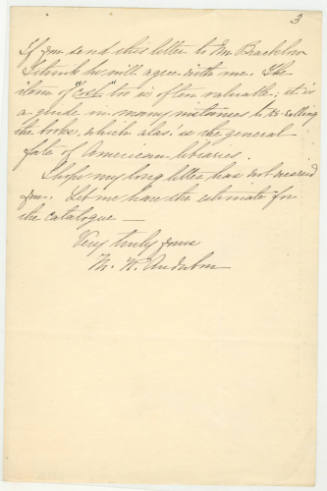 3
If you send this letter to Mr Brackbow
I think he will agree with me. The
item of "cost" too is often valuable; it is
a guide in many instances to re-selling
the books, which alas! is the general
fate of American libraries.
I hope my long letter has not wearied
you. Let me have the estimate for
the catalogue —
Very truly yours
M. R. Audubon